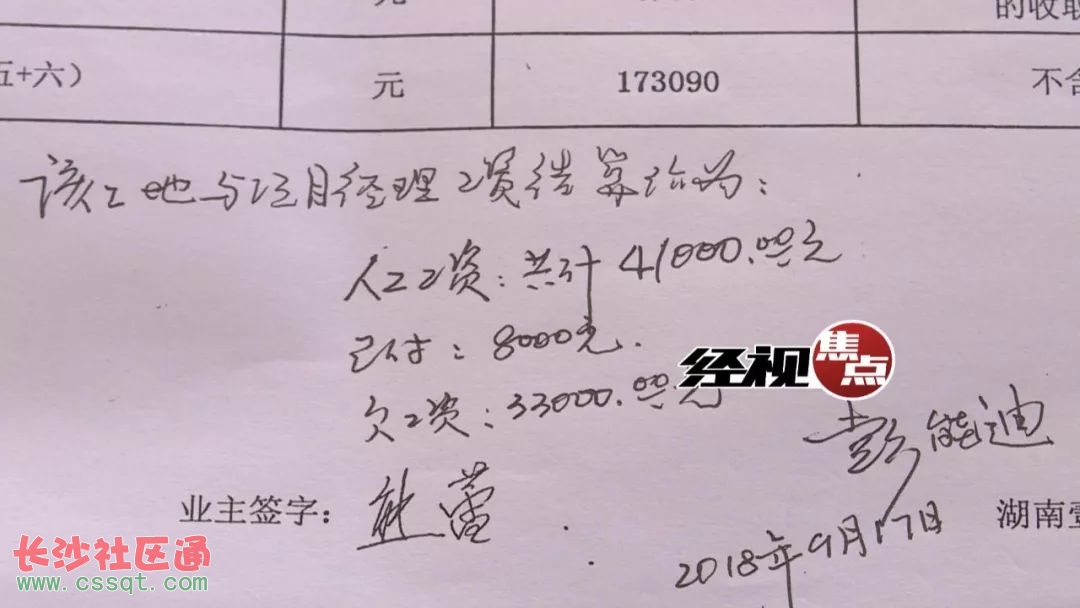 元
的收取
五+六）
元
173090
不含
该工地与项目经理工资结算给为：
人工工资：共计41000.00元
已付：8000元.
经视焦点
欠工资：33000.00元
彭能迪
业主签字：熊蕾
湖南壹
2018年9月17日
长沙社区通
www.cssqt.com